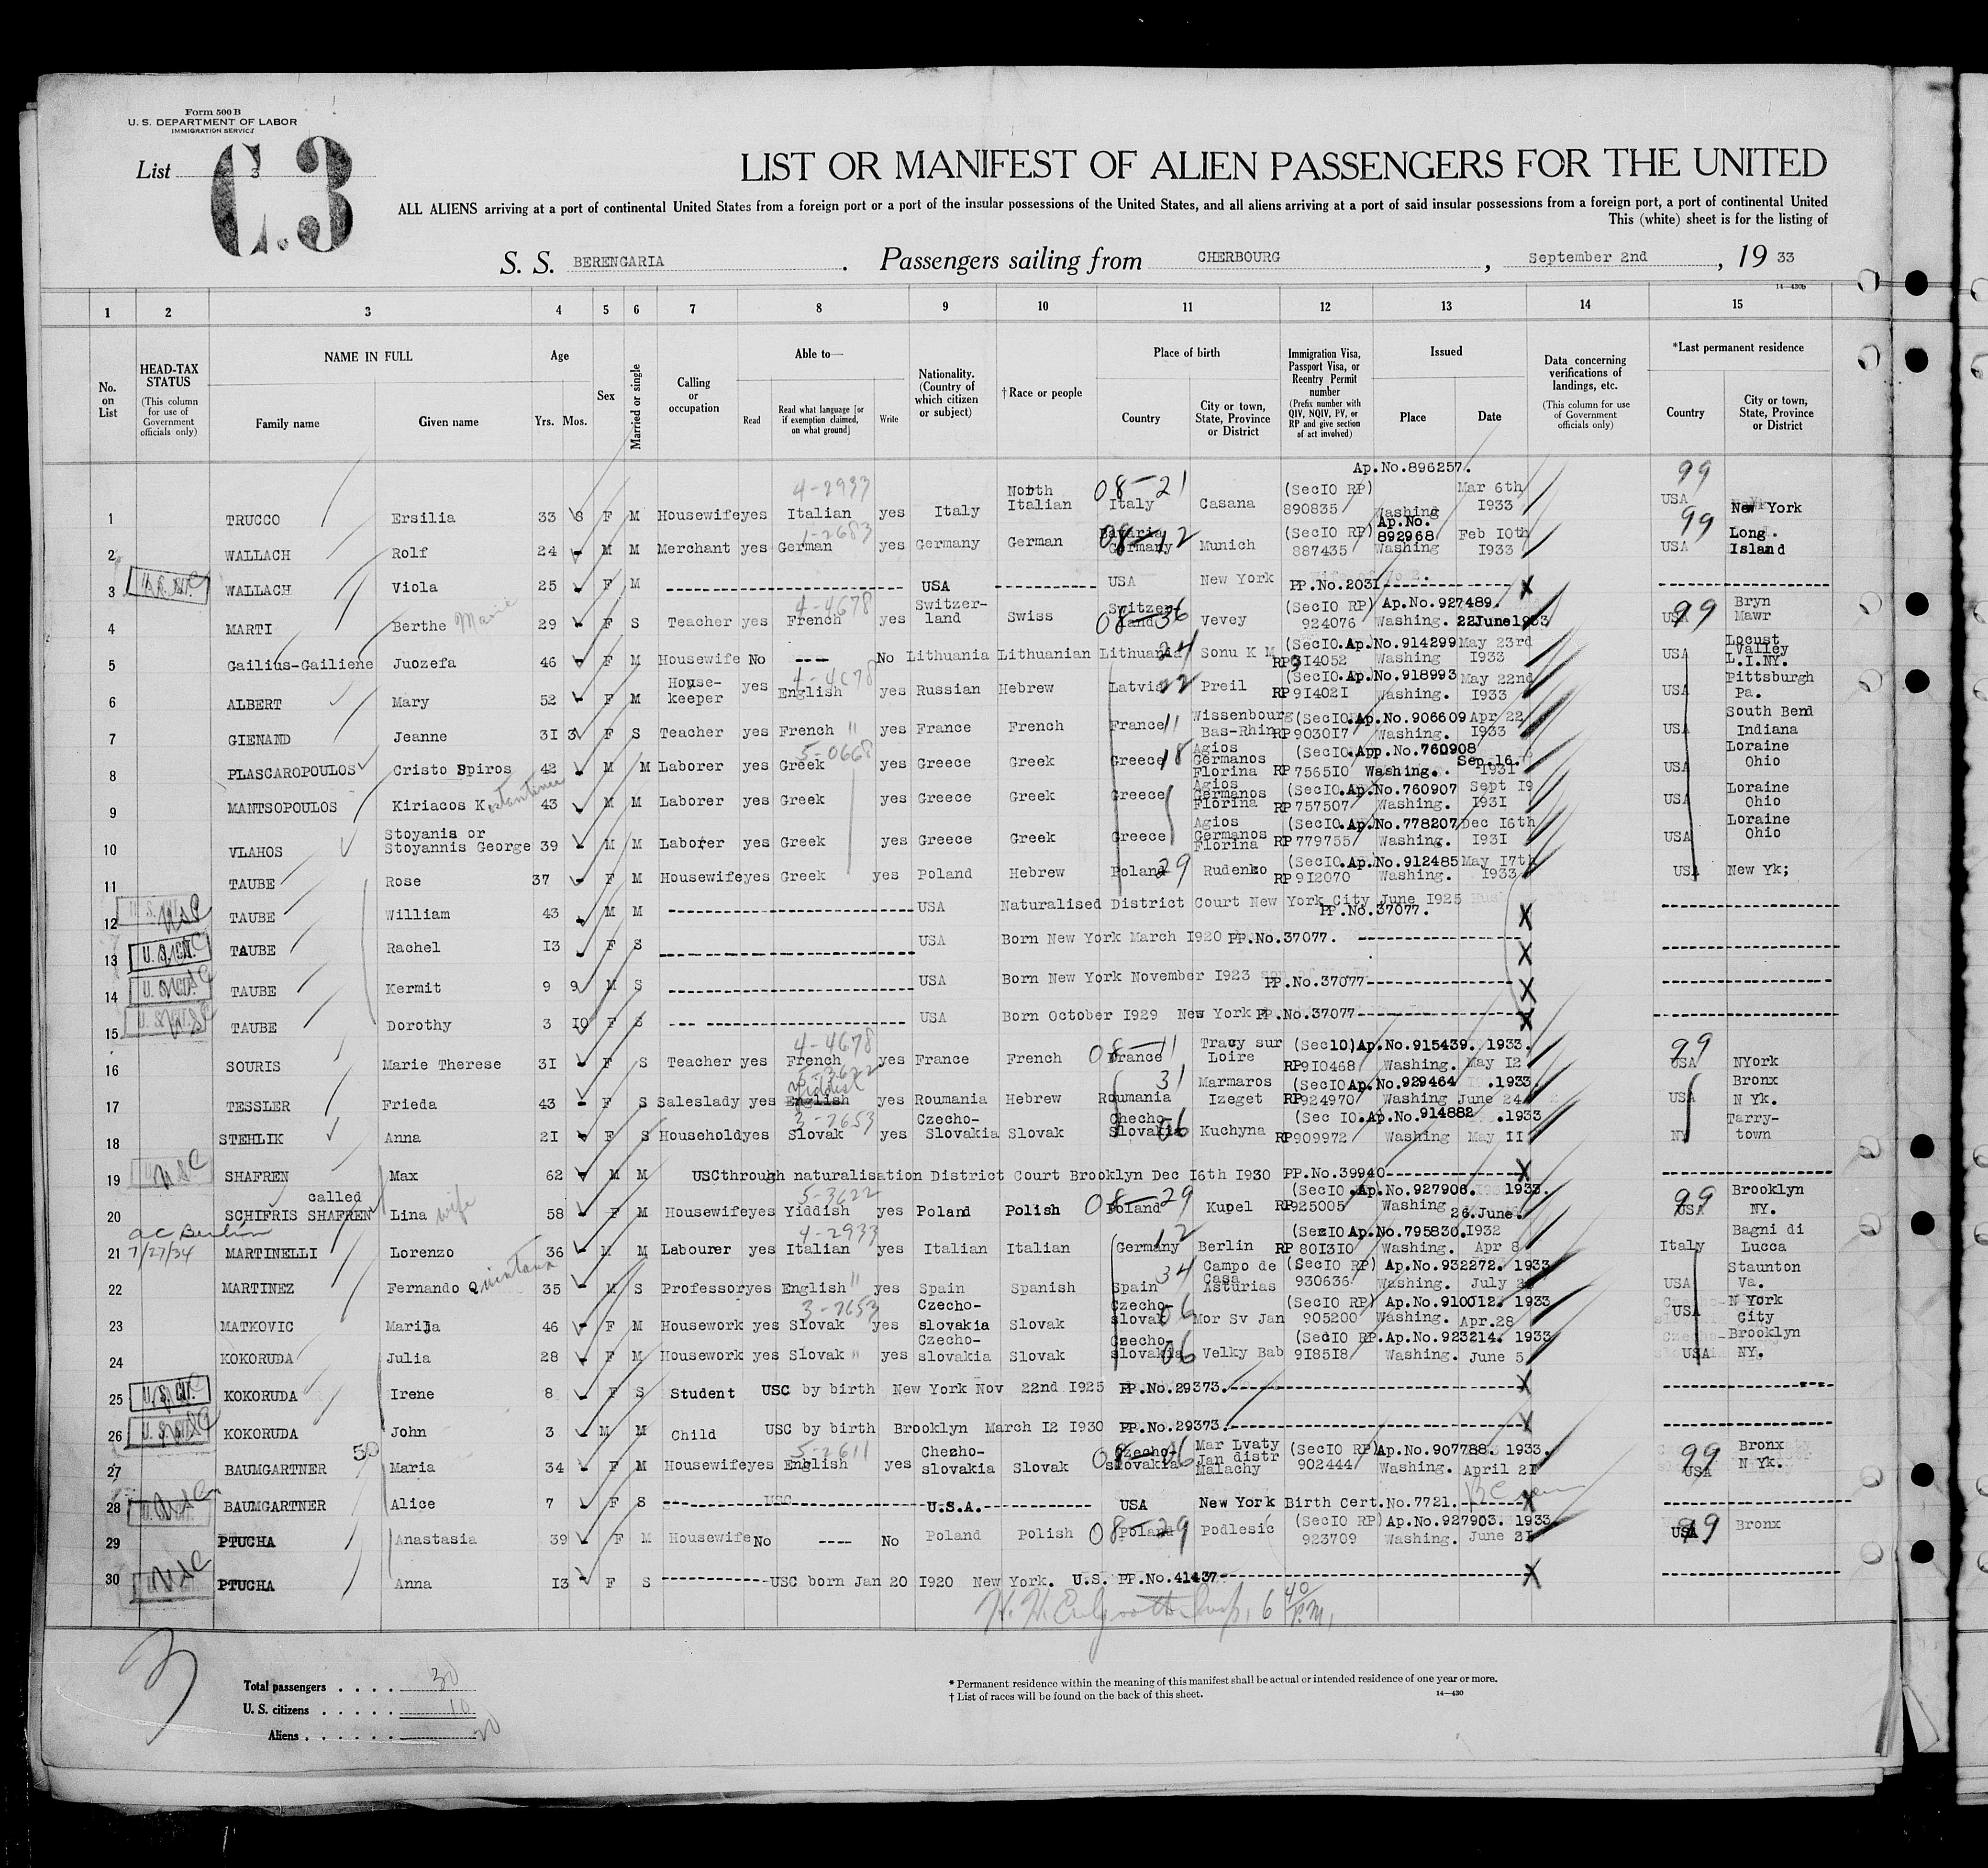 Form 500 B
U. S. DEPARTMENT OF LABOR
IMMIGRATION SERVICE
List 3
C.3
LIST OR MANIFEST OF ALIEN PASSENGERS FOR THE UNITED
ALL ALIENS arriving at a port of continental United States from a foreign port or a port of the insular possessions of the United States, and all aliens arriving at a port of said insular possessions from a foreign port, a port of continental United
This (white) sheet is for the listing of
S. S. BERENGARIA. Passengers sailing from CHERBOURG, September 2nd, 19 33
14—430B
1 2 3 4 5 6 7 8 9 10 11 12 13 14 15
No. on List
HEAD-TAX STATUS (This column for use of Government officials only)
NAME IN FULL Family name Given name
Age Yrs. Mos.
Sex
Married or single
Calling or occupation
Able to— Read Read what language [or if exemption claimed, on what ground] Write
Nationality. (Country of which citizen or subject)
†Race or people
Place of birth Country City or town, State, Province or District
Immigration Visa, Passport Visa, or Reentry Permit number (Prefix number with QIV, NQIV, PV, or RP and give section of act involved)
Issued Place Date
Data concerning verifications of landings, etc. (This column for use of Government officials only)
*Last permanent residence Country City or town, State, Province or District
1 TRUCCO Ersilia 33 8 F M Housewife yes 4-2933 Italian yes Italy North Italian 08-21 Italy Casana (SecIO RP) 890835 Ap.No.896257. Washing Mar 6th I933 99 USA New York
2 WALLACH Rolf 24 - M M Merchant yes 1-2683 German yes Germany German Bavaria Germany 08-12 Munich (SecIO RP) 887435 Ap.No. 892968 Washing Feb IOth I933 99 USA Long. Island
3 U.S. CIT. WALLACH Viola 25 F M USA USA New York PP.No.203I X
4 MARTI Berthe Marie 29 - F S Teacher yes 4-4678 French yes Switzer-land Swiss Switzer-land 08-36 Vevey (SecIO RP) 924076 Ap.No.927489. Washing. 22June1933 99 USA Bryn Mawr
5 Gailius-Gailiene Juozefa 46 - F M Housewife No --- No Lithuania Lithuanian Lithuania 24 Sonu K M (SecIO. RP9I4052 Ap.No.914299 Washing May 23rd I933 USA Locust Valley L.I.NY.
6 ALBERT Mary 52 - F M House-keeper yes 4-4678 English yes Russian Hebrew Latvia 22 Preil (SecIO. RP9I402I Ap.No.918993 Washing. May 22nd I933 USA Pittsburgh Pa.
7 GIENAND Jeanne 3I 3 F S Teacher yes French " yes France French France 11 Wissenbourg Bas-Rhin (SecIO. RP9030I7 Ap.No.906609 Washing. Apr 22 I933 USA South Bend Indiana
8 PLASCAROPOULOS Cristo Spiros 42 - M M Laborer yes 5-0668 Greek yes Greece Greek Greece 18 Agios Germanos Florina (SecIO. RP7565IO App.No.760908 Washing. Sep.16. I93I USA Loraine Ohio
9 MANTSOPOULOS Kiriacos Kostantinou 43 - M M Laborer yes Greek yes Greece Greek Greece Agios Germanos Florina (SecIO. RP757507 Ap.No.760907 Washing. Sept I9 I93I USA Loraine Ohio
10 VLAHOS Stoyanis or Stoyannis George 39 - M M Laborer yes Greek yes Greece Greek Greece Agios Germanos Florina (SecIO. RP779755 Ap.No.778207 Washing. Dec I6th I93I USA Loraine Ohio
11 TAUBE Rose 37 - F M Housewife yes Greek yes Poland Hebrew Poland 29 Rudenko (SecIO. RP9I2070 Ap.No.912485 Washing. May I7th I933 USA New Yk;
12 USC TAUBE William 43 - M M USA Naturalised District Court New York City June I925 PP.No.37077. X
13 U. S. CIT. TAUBE Rachel I3 F S USA Born New York March I920 PP.No.37077. X
14 U. S. CIT. USC TAUBE Kermit 9 9 M S USA Born New York November I923 PP.No.37077 X
15 U. S. CIT. USC TAUBE Dorothy 3 IO F S USA Born October I929 New York PP.No.37077 X
16 SOURIS Marie Therese 3I - F S Teacher yes 4-4678 French yes France French 08-11 France Tracy sur Loire (Sec10) RP9I0468 Ap.No.915439. Washing. May I2 1933. 99 USA NYork
17 TESSLER Frieda 43 - F S Saleslady yes 5-3622 Yiddish English yes Roumania Hebrew 31 Roumania Marmaros Izeget (SecIO RP924970 Ap.No.929464 Washing June 24 .1933. USA Bronx N Yk.
18 STEHLIK Anna 2I - F S Household yes 3-2653 Slovak yes Czecho-Slovakia Slovak Chécho-Slovakia 06 Kuchyna (Sec IO. RP909972 Ap.No.914882 Washing May II .1933 NY Tarry-town
19 USC SHAFREN Max 62 - M M USCthrough naturalisation District Court Brooklyn Dec I6th I930 PP.No.39940 X
20 SCHIFRIS called SHAFREN Lina wife 58 - F M Housewife yes 5-3622 Yiddish yes Poland Polish 08-29 Poland Kupel (SecIO RP925005 .Ap.No.927906. Washing 26.June. 1933. 99 USA Brooklyn NY.
7/27/34
21 MARTINELLI Lorenzo 36 - M M Labourer yes 4-2933 Italian yes Italian Italian 12 Germany Berlin (SecIO RP 80I3IO Ap.No.795830. Washing. Apr 8 I932 Italy Bagni di Lucca
22 MARTINEZ Fernando Quintana 35 - M S Professor yes English " yes Spain Spanish Spain 34 Campo de Casa Asturias (SecIO RP) 930636 Ap.No.932272. Washing. July 1933 USA Staunton Va.
23 MATKOVIC Marija 46 - F M Housework yes 3-2653 Slovak yes Czecho-slovakia Slovak Czecho-slovak 06 Mor Sv Jan (SecIO RP) 905200 Ap.No.910012. Washing. Apr.28 1933 USA N York City
24 KOKORUDA Julia 28 - F M Housework yes Slovak " yes Czecho-slovakia Slovak Czecho-slovakia 06 Velky Bab (SecIO RP. 9I85I8 Ap.No.923214. Washing. June 5 1933 USA Brooklyn NY.
25 U. S. CIT. KOKORUDA Irene 8 F S Student USC by birth New York Nov 22nd I925 PP.No.29373. X
26 U. S. CIT. KOKORUDA John 3 - M M Child USC by birth Brooklyn March I2 I930 PP.No.29373. X
27 BAUMGARTNER 50 Maria 34 - F M Housewife yes 5-2611 English yes Chezho-slovakia Slovak 08-06 Czecho-slovakia Mar Lvaty Jan distr Malachy (SecIO RP) 902444 Ap.No.907788. Washing. April 2I 1933. 99 USA Bronx N Yk.
28 BAUMGARTNER Alice 7 F S USC U.S.A. USA New York Birth Cert.No.7721. X
29 PTUCHA Anastasia 39 - F M Housewife No ---- No Poland Polish 08-29 Poland Podlesic (SecIO RP) 923709 Ap.No.927903. Washing. June 2I 1933. 99 USA Bronx
30 USC PTUCHA Anna I3 - F S USC born Jan 20 I920 New York. U.S. PP.No.41437 X
6 40/P.M.
3
Total passengers . . . . 30
U. S. citizens . . . . . 10
Aliens . . . . . . . 20
* Permanent residence within the meaning of this manifest shall be actual or intended residence of one year or more.
† List of races will be found on the back of this sheet.
14—430